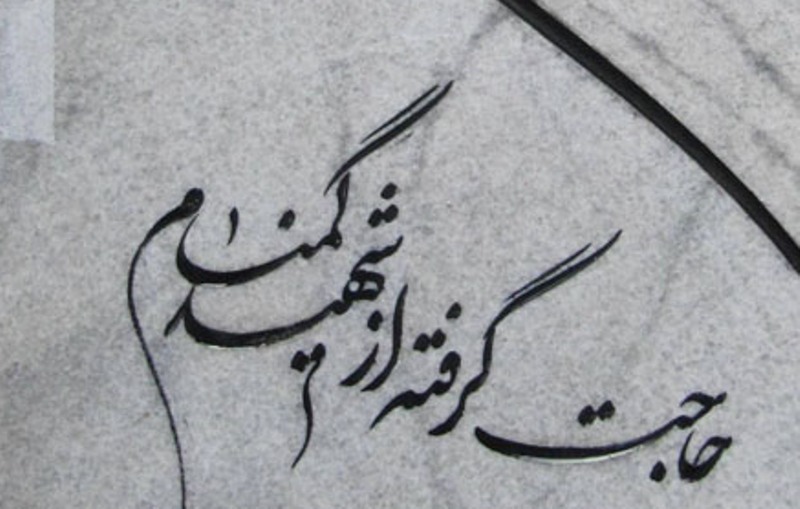 حاجت گرفته از شهید گمنام